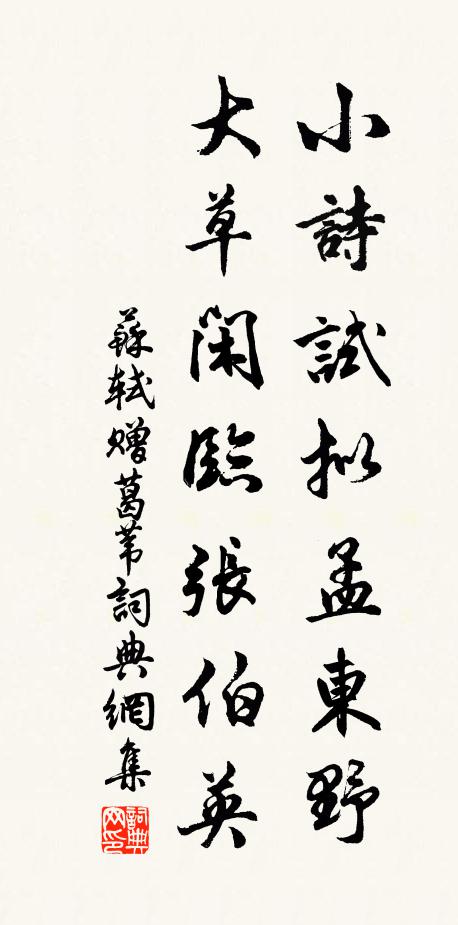 小詩試拟孟東野
大草閑臨張伯英
蘇軾贈葛苇詞典網集
詞典网印